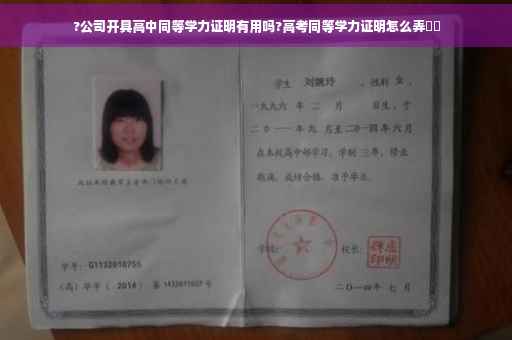 ?公司开具高中同等学力证明有用吗?高考同等学力证明怎么弄
学生 刘婉玲 ，性别 女 ，
一九九六 年 二 月 日生，于
二0一一年九 月至二0一四年六月
在本校高中部学习，学制 三年，修业
期满，成绩合格，准予毕业。
学校：
校长：
学号：G1132010755
(高) 毕字 ( 2014 ) 第 1432011027 号
二〇一四年 七 月